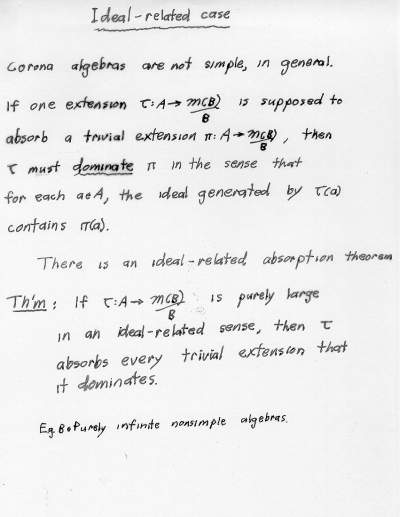 Ideal-related case
Corona algebras are not simple, in general.
If one extension τ: A → M(B)/B is supposed to
absorb a trivial extension π: A → M(B)/B, then
τ must dominate π in the sense that
for each a∈A, the ideal generated by τ(a)
contains π(a).
There is an ideal-related absorption theorem
Th'm: If τ: A → M(B)/B is purely large
in an ideal-related sense, then τ
absorbs every trivial extension that
it dominates.
Eg. B = Purely infinite nonsimple algebras.